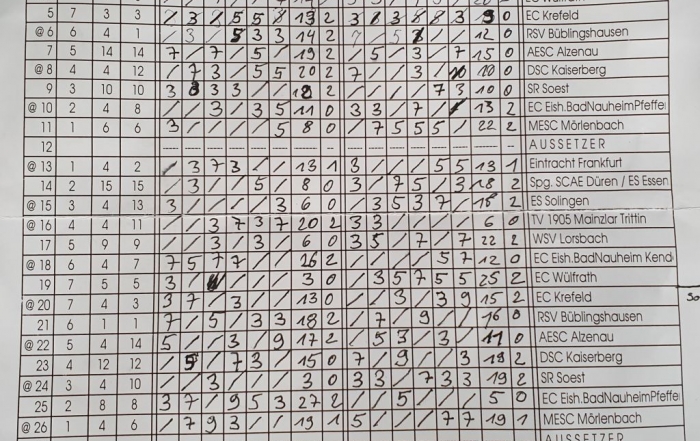 5 7 3 3 / 3 / 5 5 / 13 2 3 / 3 8 8 3 9 0 EC Krefeld
@ 6 6 4 1 / 3 / 5 3 3 14 2 / 5 / / 12 0 RSV Büblingshausen
7 5 14 14 7 / 7 / 5 / 19 2 / 5 / 3 / 7 15 0 AESC Alzenau
@ 8 4 4 12 / 7 3 / 5 5 20 2 7 / / 3 / 10 0 DSC Kaiserberg
9 3 10 10 3 3 3 / / 2 / / / / 7 3 10 0 SR Soest
@ 10 2 4 8 / / 3 / 3 5 11 0 3 3 / 7 / / 13 2 EC Eish.BadNauheimPfeffe
11 1 6 6 3 / / / / 5 8 0 / 7 5 5 5 / 22 2 MESC Mörlenbach
12 AUSSETZER
@ 13 1 4 2 / 3 7 3 / / 13 1 3 / / / 5 5 13 1 Eintracht Frankfurt
14 2 15 15 / 3 / / 5 / 8 0 3 / 7 5 / 3 18 2 Spg. SCAE Düren / ES Essen
@ 15 3 4 13 3 / / / / 3 6 0 / 3 5 3 7 / 18 2 ES Solingen
@ 16 4 4 11 / / 3 7 3 7 20 2 3 3 / / / / 6 0 TV 1905 Mainzlar Trittin
17 5 9 9 / / 3 / 3 / 6 0 3 5 / 7 / 7 22 2 WSV Lorsbach
@ 18 6 4 7 7 5 7 7 / / 26 2 / / / / 5 7 12 0 EC Eish.BadNauheim Kend
19 7 5 5 3 / / / / 3 0 / 3 5 7 5 5 25 2 EC Wülfrath
@ 20 7 4 3 3 7 / 3 / / 13 0 / / 3 / 3 9 15 2 EC Krefeld
21 6 1 1 7 / 5 / 3 3 18 2 / 7 / 9 / / 16 0 RSV Büblingshausen
@ 22 5 4 14 5 / / 3 / 9 17 2 / 5 3 / 3 / 11 0 AESC Alzenau
23 4 12 12 / 5 / 7 3 / 15 0 7 / 9 / / 3 19 2 DSC Kaiserberg
@ 24 3 4 10 / / 3 / / / 3 0 3 3 / 7 3 3 19 2 SR Soest
25 2 8 8 3 7 / 9 5 3 27 2 / / 5 / / / 5 0 EC Eish.BadNauheimPfeffe
@ 26 1 4 6 / 7 9 3 / / 19 1 5 / / / 7 7 19 1 MESC Mörlenbach
AUSSETZER